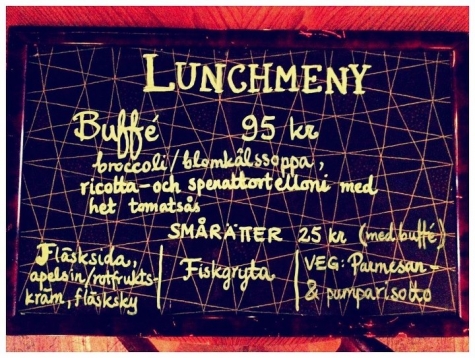 LUNCHMENY
Buffé 95 kr
broccoli/blomkålssoppa,
ricotta- och spenattortelloni med
het tomatsås
SMÅRÄTTER 25 kr (med buffé)
Fläsksida,
apelsin/rotfrukts-
kräm, fläsksky
Fiskgryta
VEG: Parmesan-
& pumparisotto